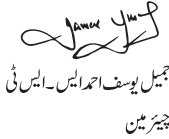 جمیل یوسف احمد ایس۔ ایس ٹی
چیئرمین